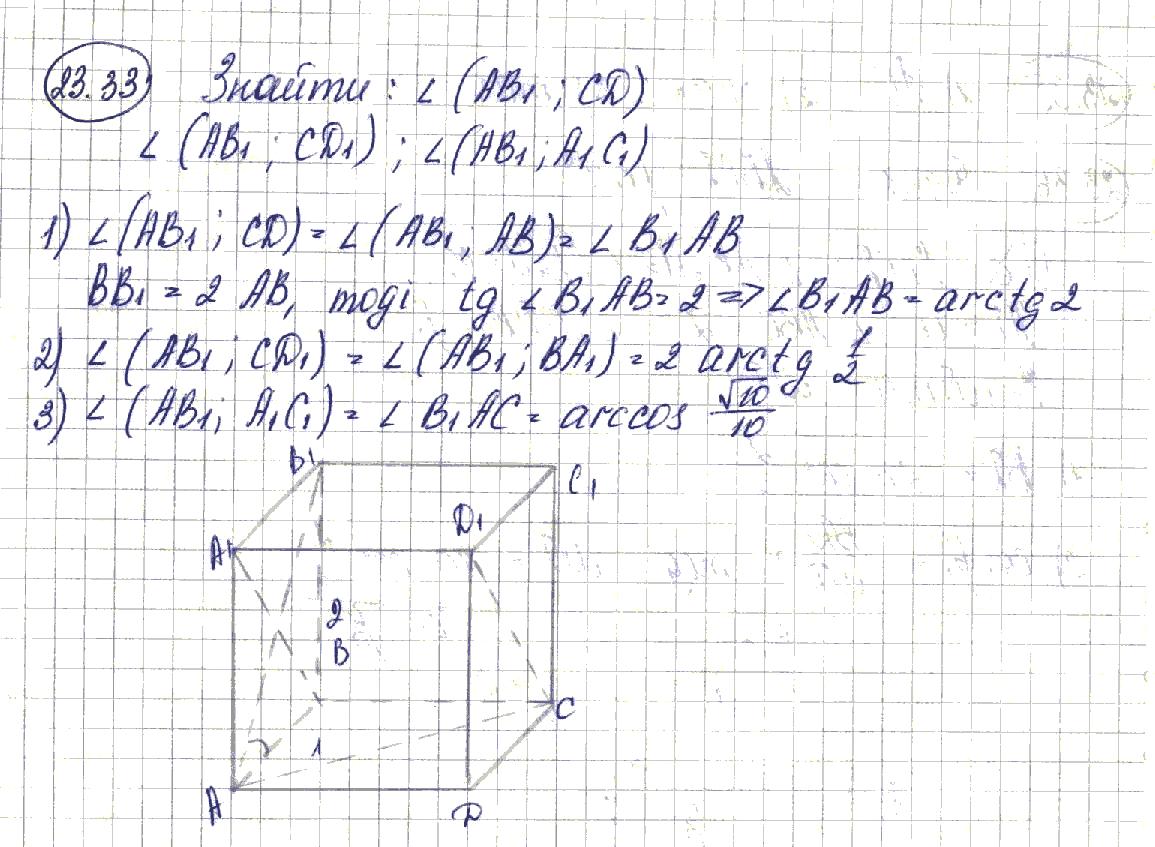 23.33 Знайти: ∠(AB₁; CD)
∠(AB₁; CD₁); ∠(AB₁; A₁C₁)
1) ∠(AB₁; CD) = ∠(AB₁, AB) = ∠B₁AB
BB₁ = 2 AB, тоді tg ∠B₁AB = 2 => ∠B₁AB = arctg 2
2) ∠(AB₁; CD₁) = ∠(AB₁; BA₁) = 2 arctg 1/2
3) ∠(AB₁; A₁C₁) = ∠B₁AC = arccos √10/10
B₁
C₁
D₁
A₁
2
B
C
1
A
D